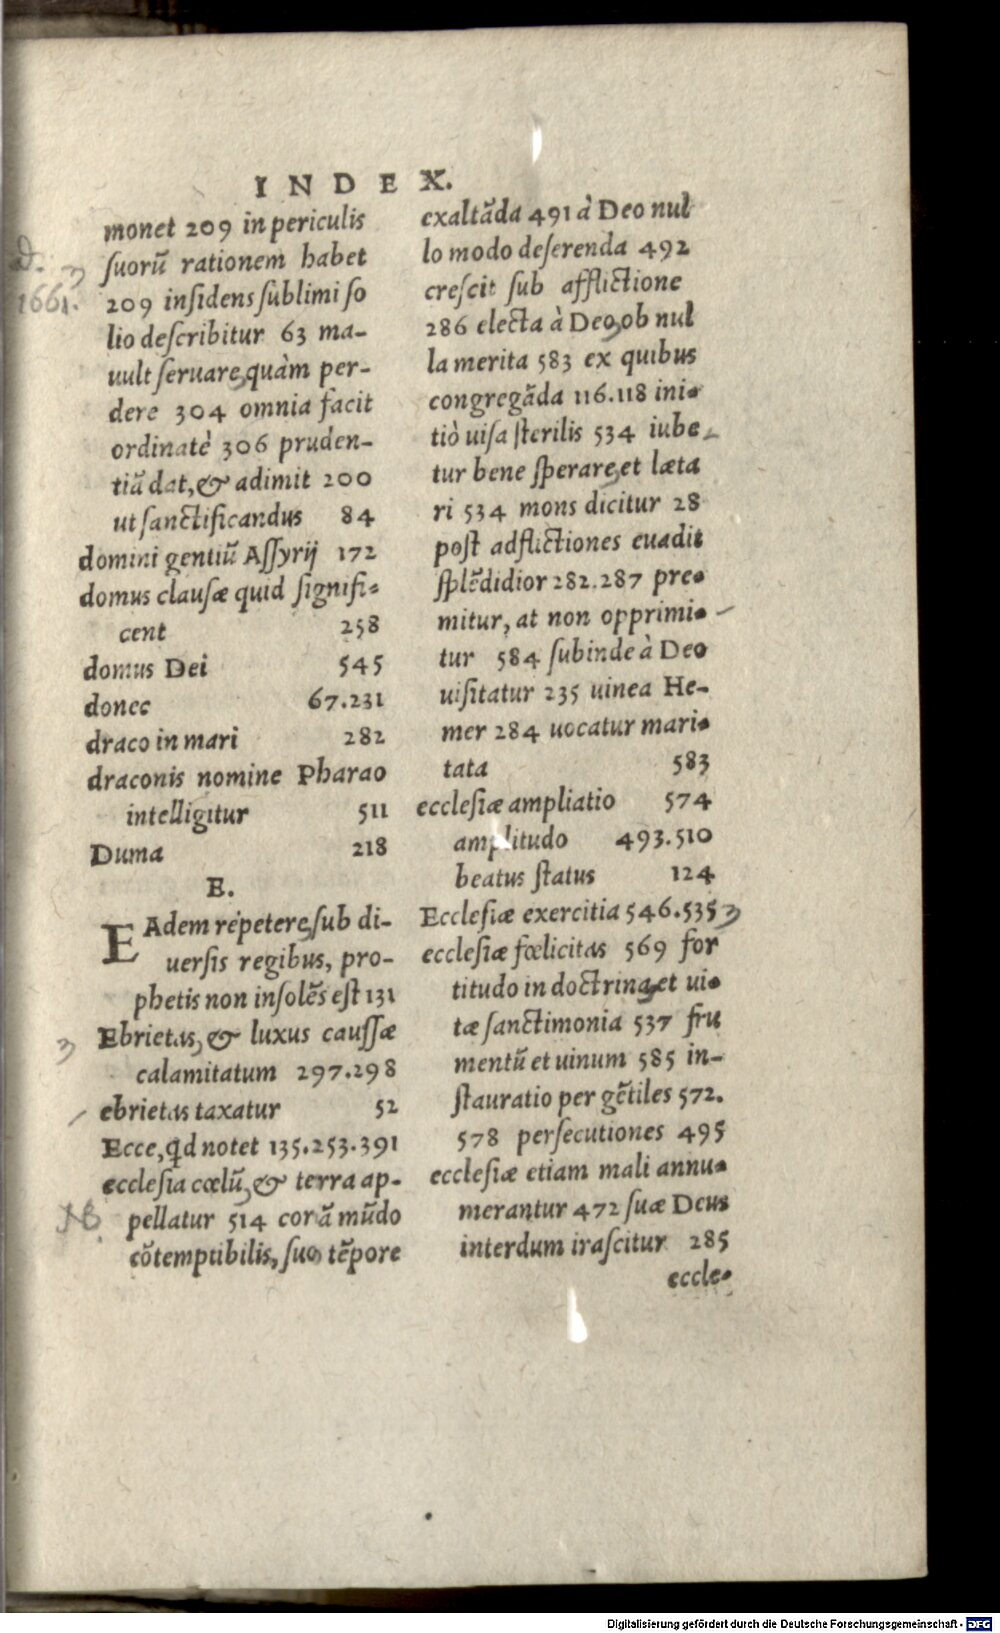 INDEX.
monet 209 in periculis
suorũ rationem habet
209 insidens sublimi so
lio describitur 63 ma-
uult seruare, quàm per-
dere 304 omnia facit
ordinatè 306 pruden-
tiã dat, & adimit 200
ut sanctificandus 84
domini gentiũ Assyrij 172
domus clausæ quid signifi-
cent 258
domus Dei 545
donec 67.231
draco in mari 282
draconis nomine Pharao
intelligitur 511
Duma 218
E.
EAdem repetere, sub di-
uersis regibus, pro-
phetis non insolẽs est 131
Ebrietas, & luxus caussæ
calamitatum 297.298
ebrietas taxatur 52
Ecce, qd notet 135.253.391
ecclesia cœlũ, & terra ap-
pellatur 514 corã mũdo
cõtemptibilis, suo tẽpore
exaltãda 491 à Deo nul
lo modo deserenda 492
crescit sub afflictione
286 electa à Deo, ob nul
la merita 583 ex quibus
congregãda 116.118 ini-
tiò uisa sterilis 534 iube-
tur bene sperare, et læta
ri 534 mons dicitur 28
post adflictiones euadit
splẽdidior 282.287 pre-
mitur, at non opprimi-
tur 584 subinde à Deo
uisitatur 235 uinea He-
mer 284 uocatur mari-
tata 583
ecclesiæ ampliatio 574
amplitudo 493.510
beatus status 124
Ecclesiæ exercitia 546.535
ecclesiæ fœlicitas 569 for
titudo in doctrina, et ui-
tæ sanctimonia 537 fru
mentũ et uinum 585 in-
stauratio per gẽtiles 572.
578 persecutiones 495
ecclesiæ etiam mali annu-
merantur 472 suæ Deus
interdum irascitur 285
eccle-
d.
1661.
NB.
Digitalisierung gefördert durch die Deutsche Forschungsgemeinschaft - DFG